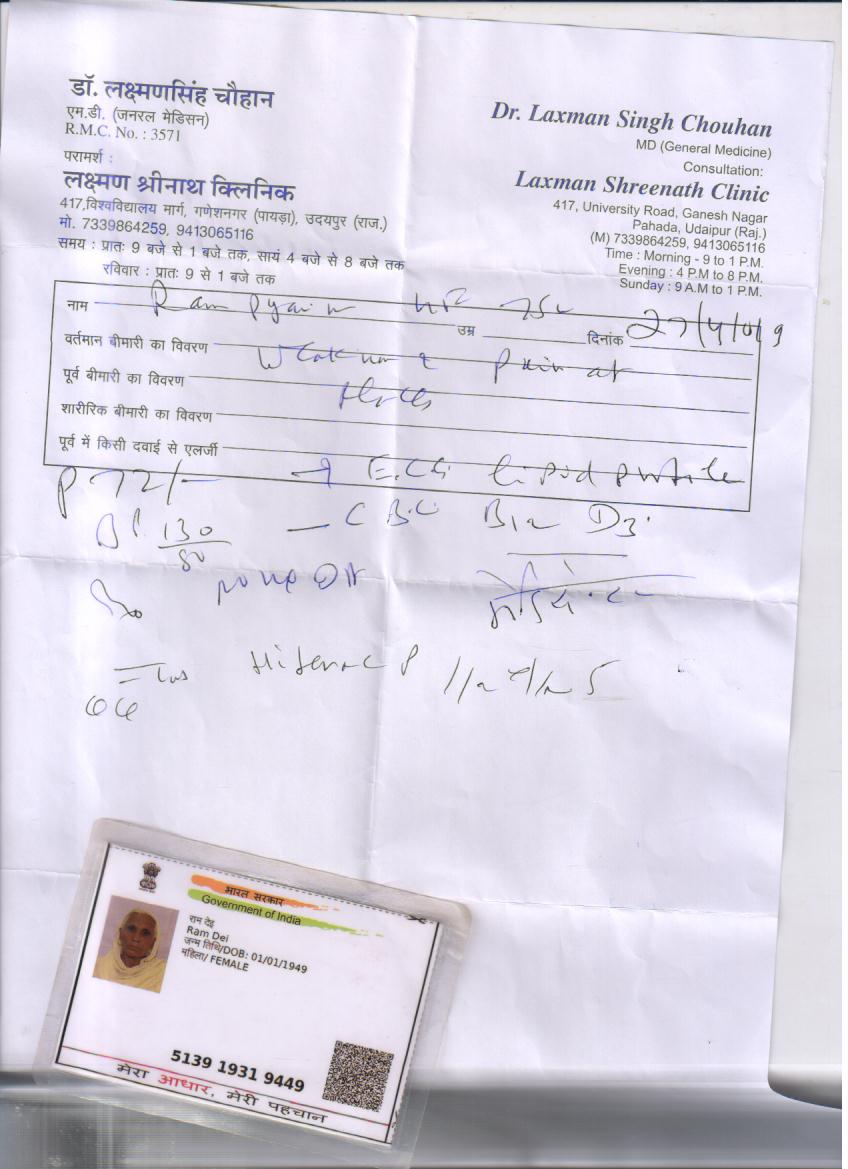 डॉ. लक्ष्मणसिंह चौहान
एम.डी. (जनरल मेडिसन)
R.M.C. No. : 3571
परामर्श :
लक्ष्मण श्रीनाथ क्लिनिक
417,विश्वविद्यालय मार्ग, गणेशनगर (पायड़ा), उदयपुर (राज.)
मो. 7339864259, 9413065116
समय : प्रातः 9 बजे से 1 बजे तक, सायं 4 बजे से 8 बजे तक
रविवार : प्रातः 9 से 1 बजे तक
Dr. Laxman Singh Chouhan
MD (General Medicine)
Consultation:
Laxman Shreenath Clinic
417, University Road, Ganesh Nagar
Pahada, Udaipur (Raj.)
(M) 7339864259, 9413065116
Time : Morning - 9 to 1 P.M.
Evening : 4 P.M to 8 P.M.
Sunday : 9 A.M to 1 P.M.
नाम Ram उम्र दिनांक
वर्तमान बीमारी का विवरण Pain at
पूर्व बीमारी का विवरण
शारीरिक बीमारी का विवरण
पूर्व में किसी दवाई से एलर्जी
P 72/- E.C.G. Lipid profile
BP. 130/80 — CBC B12 D3
भारत सरकार
Government of India
राम देइ
Ram Dei
जन्म तिथि/DOB: 01/01/1949
महिला/ FEMALE
5139 1931 9449
मेरा आधार, मेरी पहचान